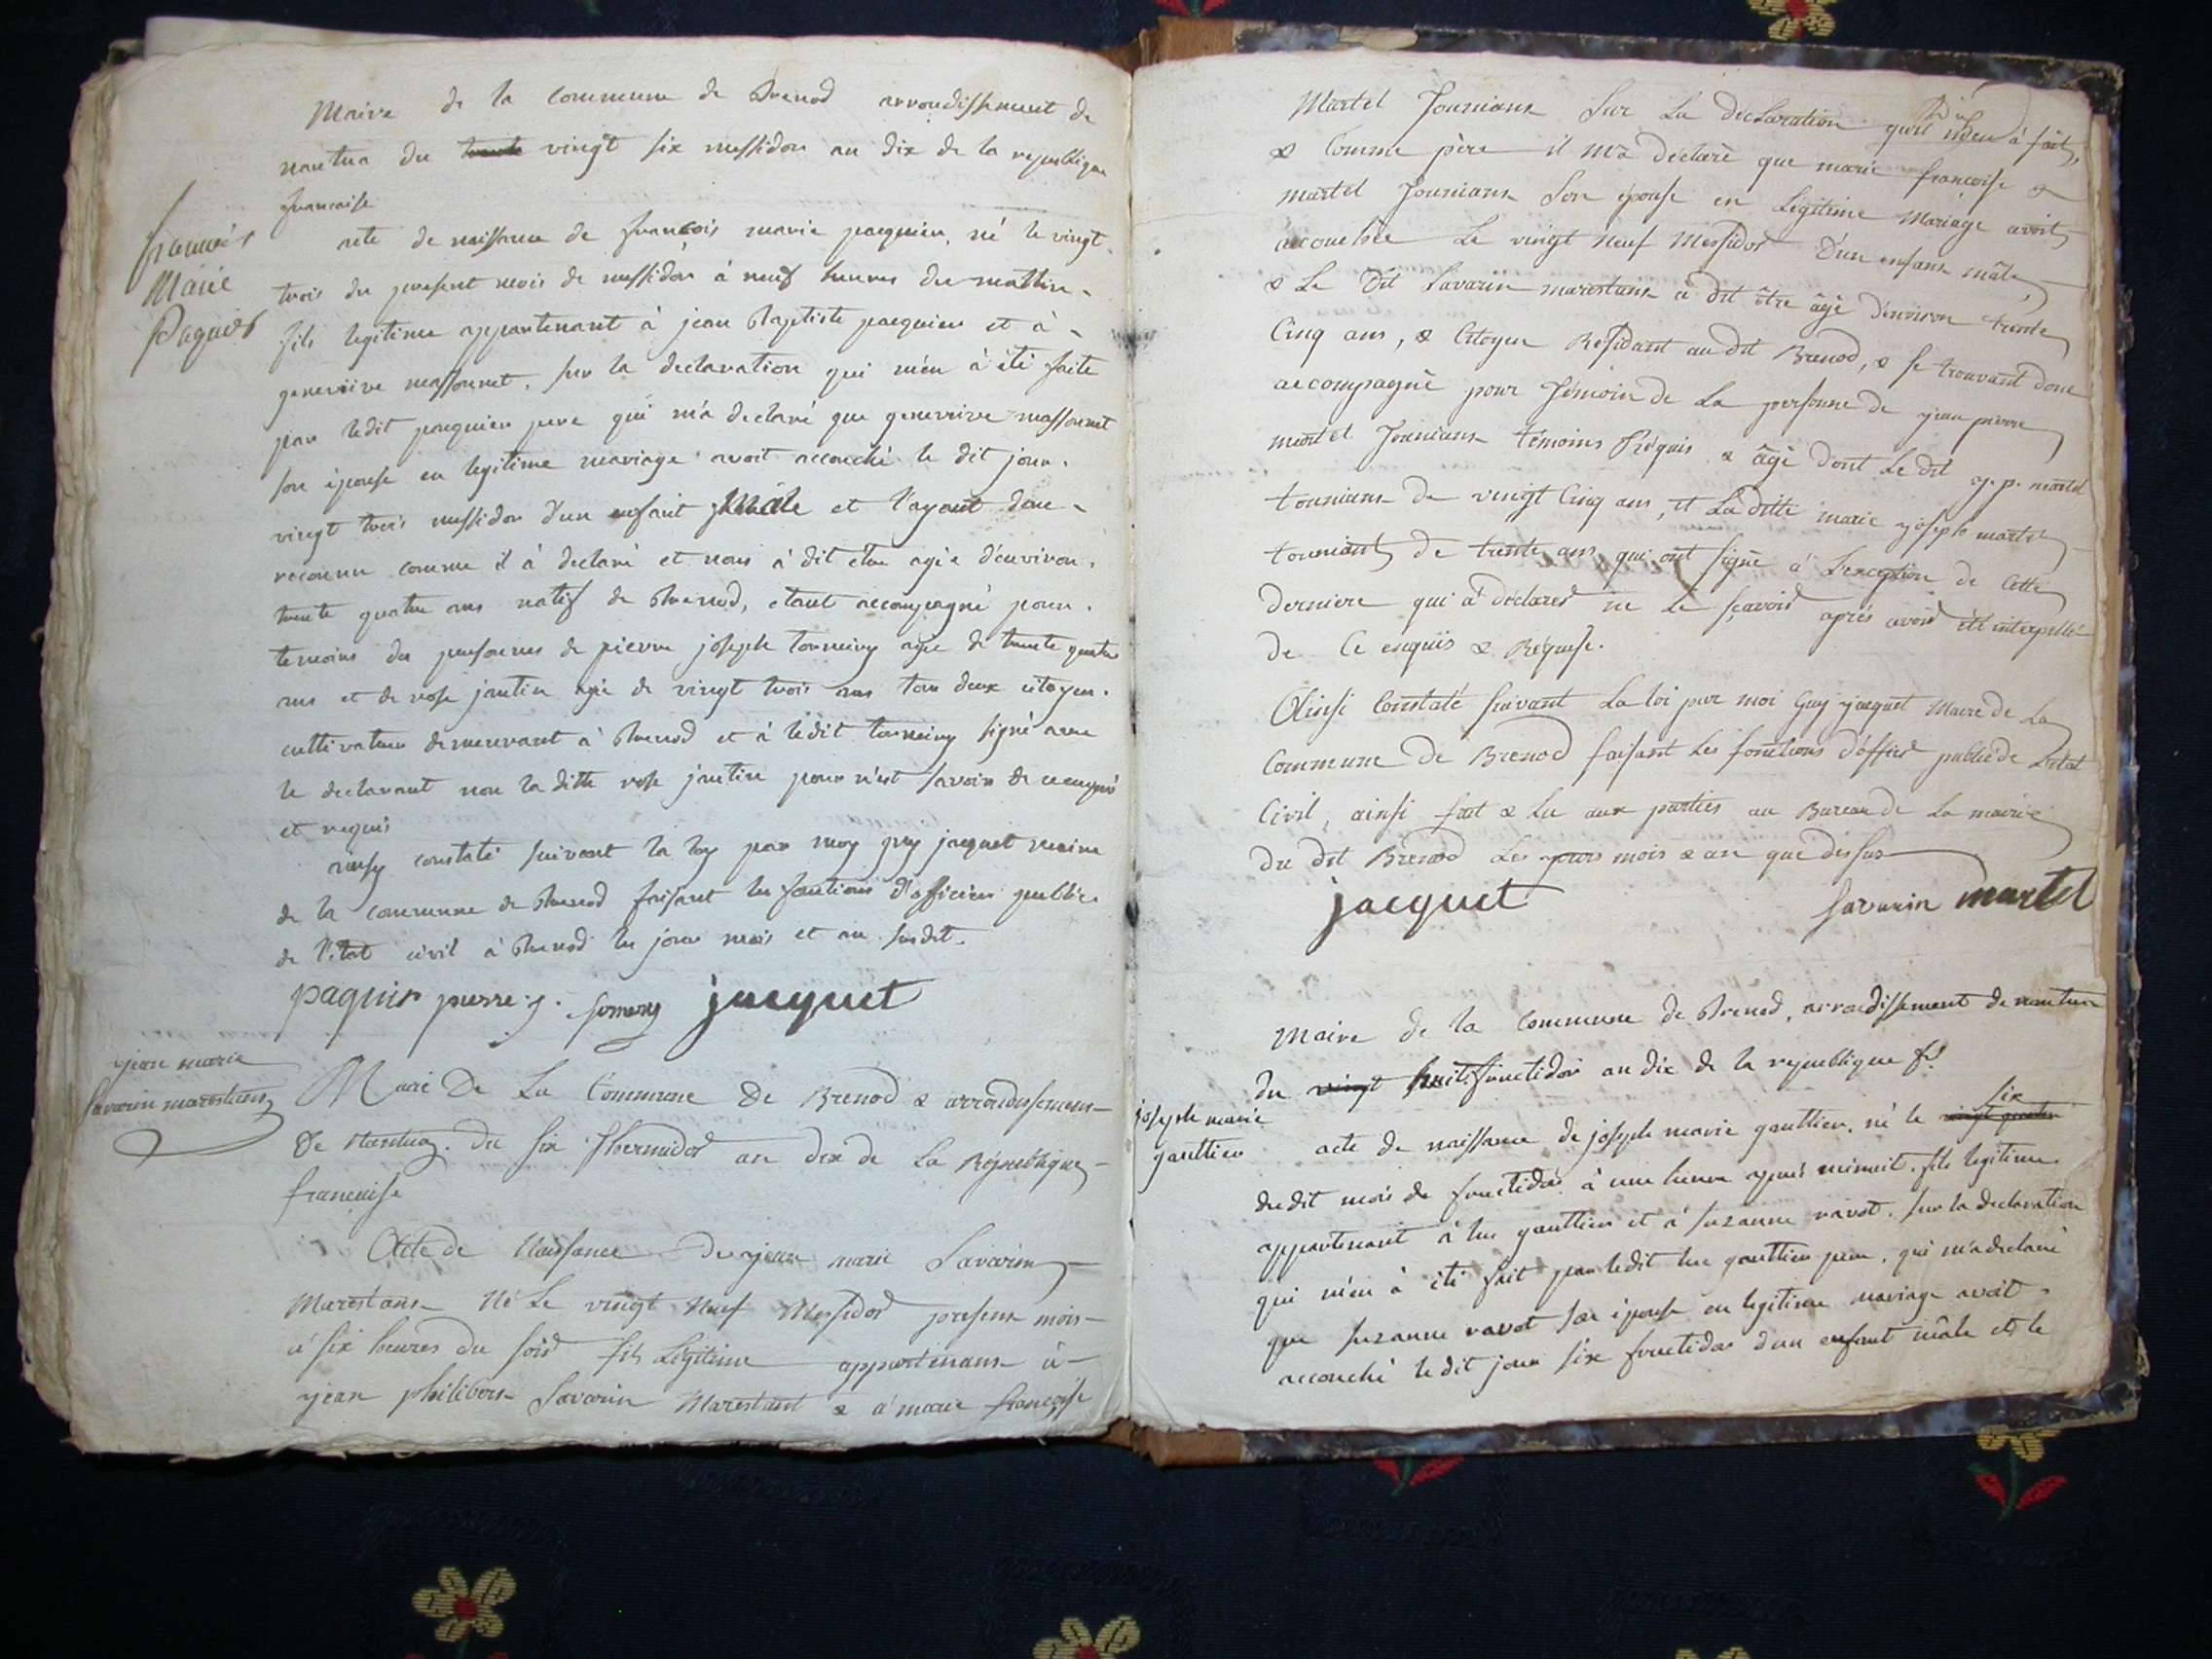 Maire de la Commune de Brenod arrondissement de
nantua du vingt six messidor an dix de la republique
francaise
francois
Marie
Paquier
acte de naissance de francois marie paquier, né le vingt
trois du present mois de messidor à neuf heures du mattin
fils legitime appartenant à jean Baptiste paquier et à
genevieve massonnet. sur la declaration qui m'en à été faite
par ledit paquier pere qui m'a declaré que genevieve massonnet
son épouse en legitime mariage avoit accouché le dit jour
vingt trois messidor d'un enfant Mâle et l'ayant
reconnu comme il à declaré et nous à dit être agé d'environ
trente quatre ans natif de Brenod, etant accompagné pour
temoins des personnes de pierre joseph tornery agé de trente quatre
ans et de rose jantin agé de vingt trois ans tous deux citoyen
cultivateur demeurant à Brenod et à ledit signé avec
le declarant non la ditte rose jantin pour n'est savoir de ce enquis
et requis
ainsy constaté suivant la loy par moy guy jacquet maire
de la commune de Brenod faisant les fonctions d'officier public
de l'état civil à Brenod les jour mois et an susdit.
paquir pierre j. jacquet
jean marie
Savarin marestans
Maire De La Commune de Brenod & arrondissement
De Nantua. du six Thermidor an dix de La République
française
Acte de Naissance de jean marie Savarin
Marestans Né Le vingt Neuf Messidor present mois
à six heures du soir fils Légitime appartenans à
jean philibert Savarin Marestant & à marie françoise
Martel Tournians Sur La declaration qu'il m'en à fait,
& Comme père il m'a déclaré que marie françoise
martel Tournians Son épouse en Légitime Mariage avoit
accouchée Le vingt Neuf Messidor D'un enfans mâle,
& Le Dit Savarin marestans à dit être âgé d'environ trente
Cinq ans, & Citoyen Résidant au dit Brenod, & se trouvant donc
accompagné pour Témoin de La personne de jean pierre
martel Tournians témoins Réquis & âgé dont Le dit j. p. martel
tournians de vingt Cinq ans, et La ditte marie joseph martel
tournians de trente ans qui ont signé à L'exception de Cette
derniere qui à déclarer ne Le sçavoir après avoir été interpellé
de Ce enquis & Réquise.
Ainsi Constaté suivant La loi par moi Guy jacquet Maire de La
Commune de Brenod faisant Les fonctions d'officier public de L'etat
Civil, ainsi fait & Lu aux parties au Bureau de La mairie
du dit Brenod Les jours mois & an que dessus
jacquet Savarin martel
Maire de la Commune de Brenod, arrondissement de nantua
du vingt huit fructidor an dix de la republique fse
joseph marie
gauttier
acte de naissance de joseph marie gauttier. né le six
dudit mois de fructidor à une heure après minuit. fils legitime
appartenant à luc gauttier et à suzanne ravot. sur la declaration
qui m'en à été fait par ledit luc gauttier pere, qui m'a declaré
que suzanne ravot son épouse en legitime mariage avoit
accouché le dit jour six fructidor d'un enfant mâle et le